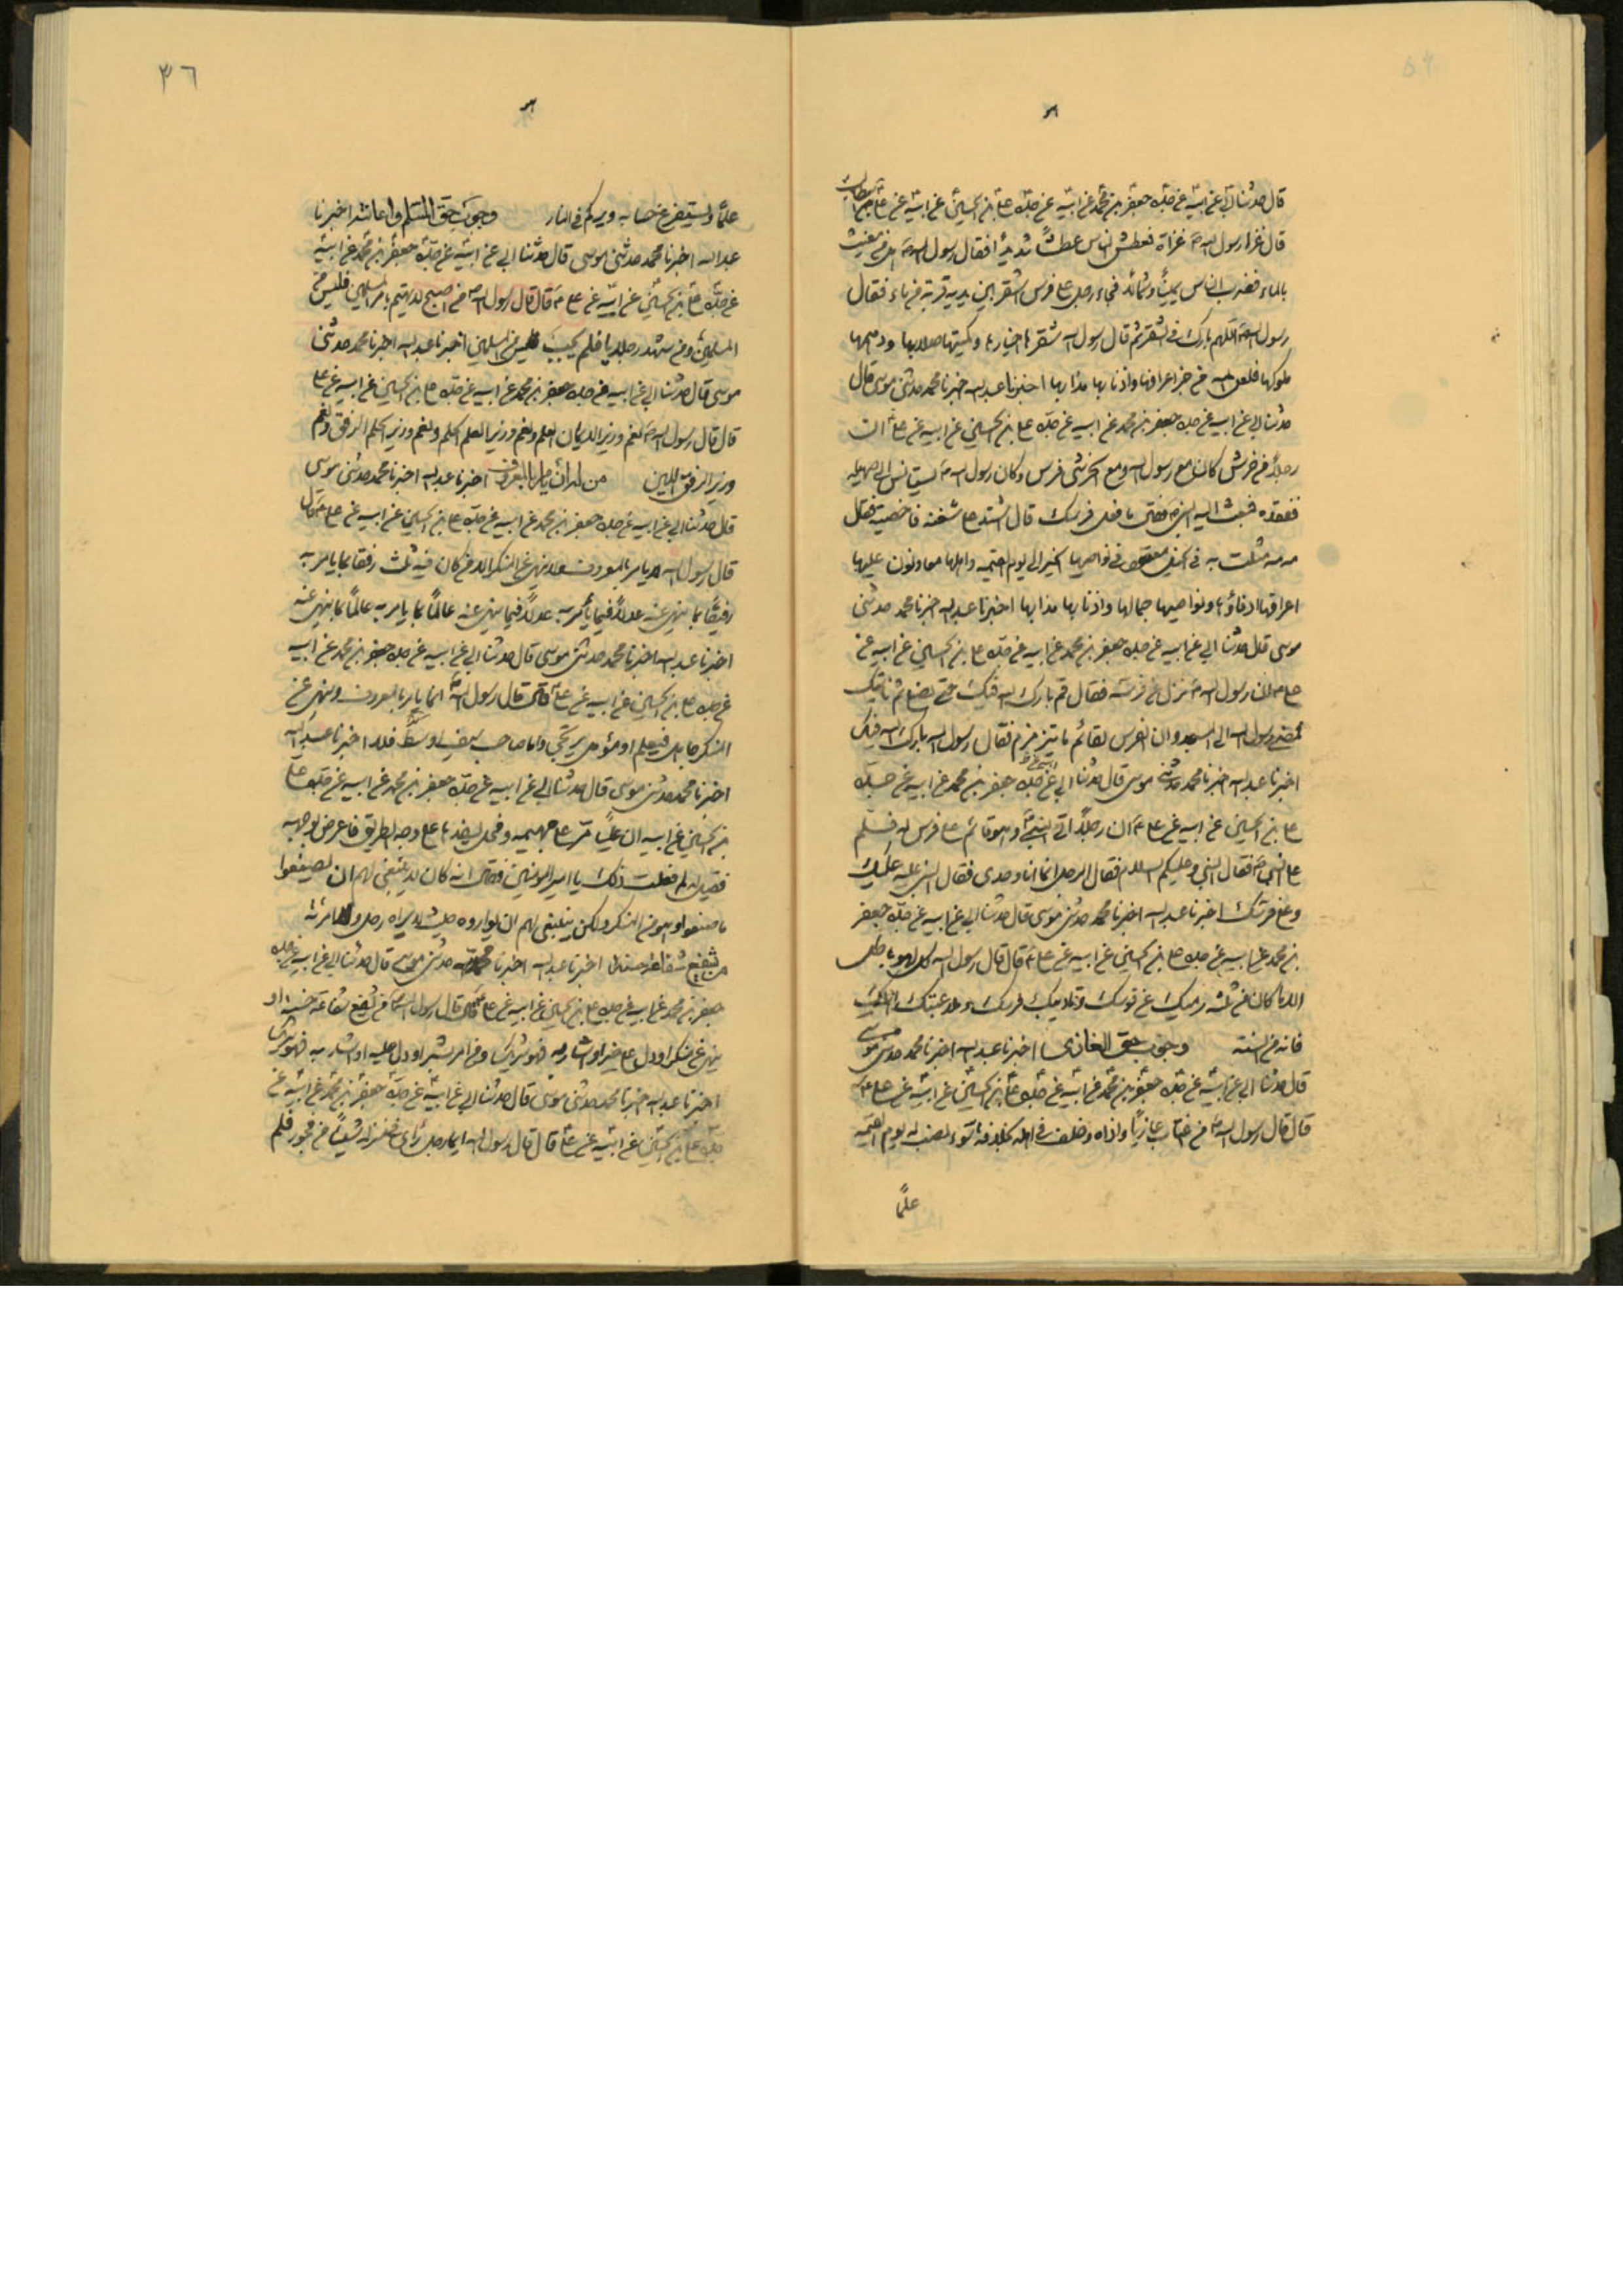 قال حدثنا ابي عن ابيه عن جده جعفر بن محمد عن ابيه عن جده علي بن الحسين عن ابيه عن علي بن ابيطالب
قال غزا رسول الله ص غزاة فعطش الناس عطشًا شديدًا فقال رسول الله ص هل من مغيث
بالماء فضرب الناس يمينًا وشمالًا فجاء رجل على فرس اشقر بين يديه قربة من ماء فقال
رسول الله ص اللهم بارك في شقر ثم قال رسول الله شقرها خيارها وكميتها صلابها ودهمها
ملوكها فلعن الله من جز اعرافها واذنابها مذابها اخبرنا عبد الله اخبرنا محمد حدثني موسى قال
حدثنا ابي عن ابيه عن جده جعفر بن محمد عن ابيه عن جده علي بن الحسين عن ابيه عن علي ان
رجلًا من خرش كان مع رسول الله ومع الخرشي فرس وكان رسول الله ص يستانس الى صهيله
ففقده فبعث اليه النبي ص فقال ما فعل فرسك قال اشتد علي شغبه فاخصيته فقال
مه مه مثلت به في الخيل معقود في نواصيها الخير الى يوم القيمه واهلها معاونون عليها
اعرافها ادفاؤها ونواصيها جمالها واذنابها مذابها اخبرنا عبد الله اخبرنا محمد حدثني
موسى قال حدثنا ابي عن ابيه عن جده جعفر بن محمد عن ابيه عن جده علي بن الحسين عن ابيه عن
علي ان رسول الله ص نزل عن فرسه فقال قم بارك الله فيك حتى نصلي ثم ناتيك
فمضى رسول الله الى المسجد وان الفرس لقائم ما يتزمزم فقال رسول الله بارك الله فيك
اخبرنا عبد الله اخبرنا محمد حدثني موسى قال حدثنا ابي عن ابيه عن جده جعفر بن محمد عن ابيه عن جده
علي بن الحسين عن ابيه عن علي ع ان رجلًا اتى النبي ص وهو قائم على فرس له فسلم
على النبي ص فقال النبي وعليكم السلام فقال الرجل انما انا وحدى فقال النبي عليه عليك
وعلى فرسك اخبرنا عبد الله اخبرنا محمد حدثني موسى قال حدثنا ابي عن ابيه عن جده جعفر
بن محمد عن ابيه عن جده علي بن الحسين عن ابيه عن علي ع قال قال رسول الله كل لهو باطل
الا ما كان من ثلثه رميك عن قوسك وتاديبك فرسك وملاعبتك اهلك
فانه من السنه وجوب حق الغازى اخبرنا عبد الله اخبرنا محمد حدثني موسى
قال حدثنا ابي عن ابيه عن جده جعفر بن محمد عن ابيه عن جده علي بن الحسين عن ابيه عن علي ع
قال قال رسول الله ص من اغتاب غازيًا واذاه وخلف في اهله بخلافة سوء نصب له يوم القيمه
علمًا
٣٦
علمًا وليستفرغ حسابه ويركم في النار وجوب حق المسلم واعانته اخبرنا
عبد الله اخبرنا محمد حدثني موسى قال حدثنا ابي عن ابيه عن جده جعفر بن محمد عن ابيه
عن جده علي بن الحسين عن ابيه عن علي ع قال قال رسول الله ص من اصبح لا يهتم بامر المسلمين فليس من
المسلمين ومن شهد رجلا ينادى يا فلم يجبه فليس من المسلمين اخبرنا عبد الله اخبرنا محمد حدثني
موسى قال حدثنا ابي عن ابيه عن جده جعفر بن محمد عن ابيه عن جده علي بن الحسين عن ابيه عن علي
قال قال رسول الله ص نعم وزير الايمان العلم ونعم وزير العلم الحلم ونعم وزير الحلم الرفق ونعم
وزير الرفق اللين من له ان يامر بالمعروف اخبرنا عبد الله اخبرنا محمد حدثني موسى
قال حدثنا ابي عن ابيه عن جده جعفر بن محمد عن ابيه عن جده علي بن الحسين عن ابيه عن علي ع قال
قال رسول الله لا يامر بالمعروف ولا ينهى عن المنكر الا من كان فيه ثلث رفيقا بما يامر به
رفيقًا بما ينهى عنه عدلًا فيما يأمر به عدلًا فيما ينهى عنه عالمًا بما يامر به عالمًا بما ينهى عنه
اخبرنا عبد الله اخبرنا محمد حدثني موسى قال حدثنا ابي عن ابيه عن جده جعفر بن محمد عن ابيه
عن جده علي بن الحسين عن ابيه عن علي ع قال قال رسول الله ص انما يامر بالمعروف وينهى عن
المنكر جاهل فيعلم او مؤمن يرتجى واما صاحب سيف او سوط فلا اخبرنا عبد الله
اخبرنا محمد حدثني موسى قال حدثنا ابي عن ابيه عن جده جعفر بن محمد عن ابيه عن جده علي
بن الحسين عن ابيه ان عليًا مر على بهيمه وفحل يسفدها على وجه الطريق فاعرض بوجهه
فقيل له لم فعلت ذلك يا امير المؤمنين فقال انه كان لا ينبغى لهم ان يصنعوا
ما صنعوا وهو من المنكر ولكن ينبغى لهم ان يواروه حيث لا يراه رجل ولا امرئة
من يشفع شفاعة حسنة اخبرنا عبد الله اخبرنا محمد حدثني موسى قال حدثنا ابي عن ابيه عن جده
جعفر بن محمد عن ابيه عن جده علي بن الحسين عن ابيه عن علي ع قال قال رسول الله ص من يشفع شفاعة حسنه او
ينهى عن منكر او دل على خير او اشار به فهو شريك ومن امر بشر او دل عليه او اشار به فهو شريك
اخبرنا عبد الله اخبرنا محمد حدثني موسى قال حدثنا ابي عن ابيه عن جده جعفر بن محمد عن ابيه عن
جده علي بن الحسين عن ابيه عن علي قال قال رسول الله ايما رجل رأى في منزله شيئًا من فجور فلم